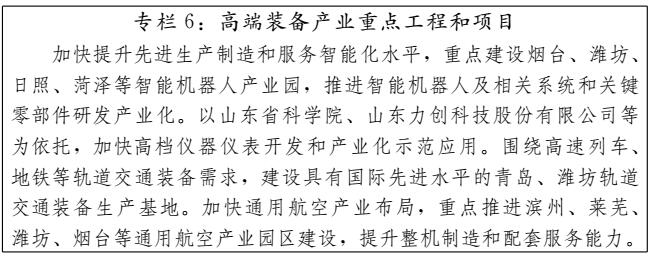 专栏 6：高端装备产业重点工程和项目
加快提升先进生产制造和服务智能化水平，重点建设烟台、潍坊、
日照、菏泽等智能机器人产业园，推进智能机器人及相关系统和关键
零部件研发产业化。以山东省科学院、山东力创科技股份有限公司等
为依托，加快高档仪器仪表开发和产业化示范应用。围绕高速列车、
地铁等轨道交通装备需求，建设具有国际先进水平的青岛、潍坊轨道
交通装备生产基地。加快通用航空产业布局，重点推进滨州、莱芜、
潍坊、烟台等通用航空产业园区建设，提升整机制造和配套服务能力。